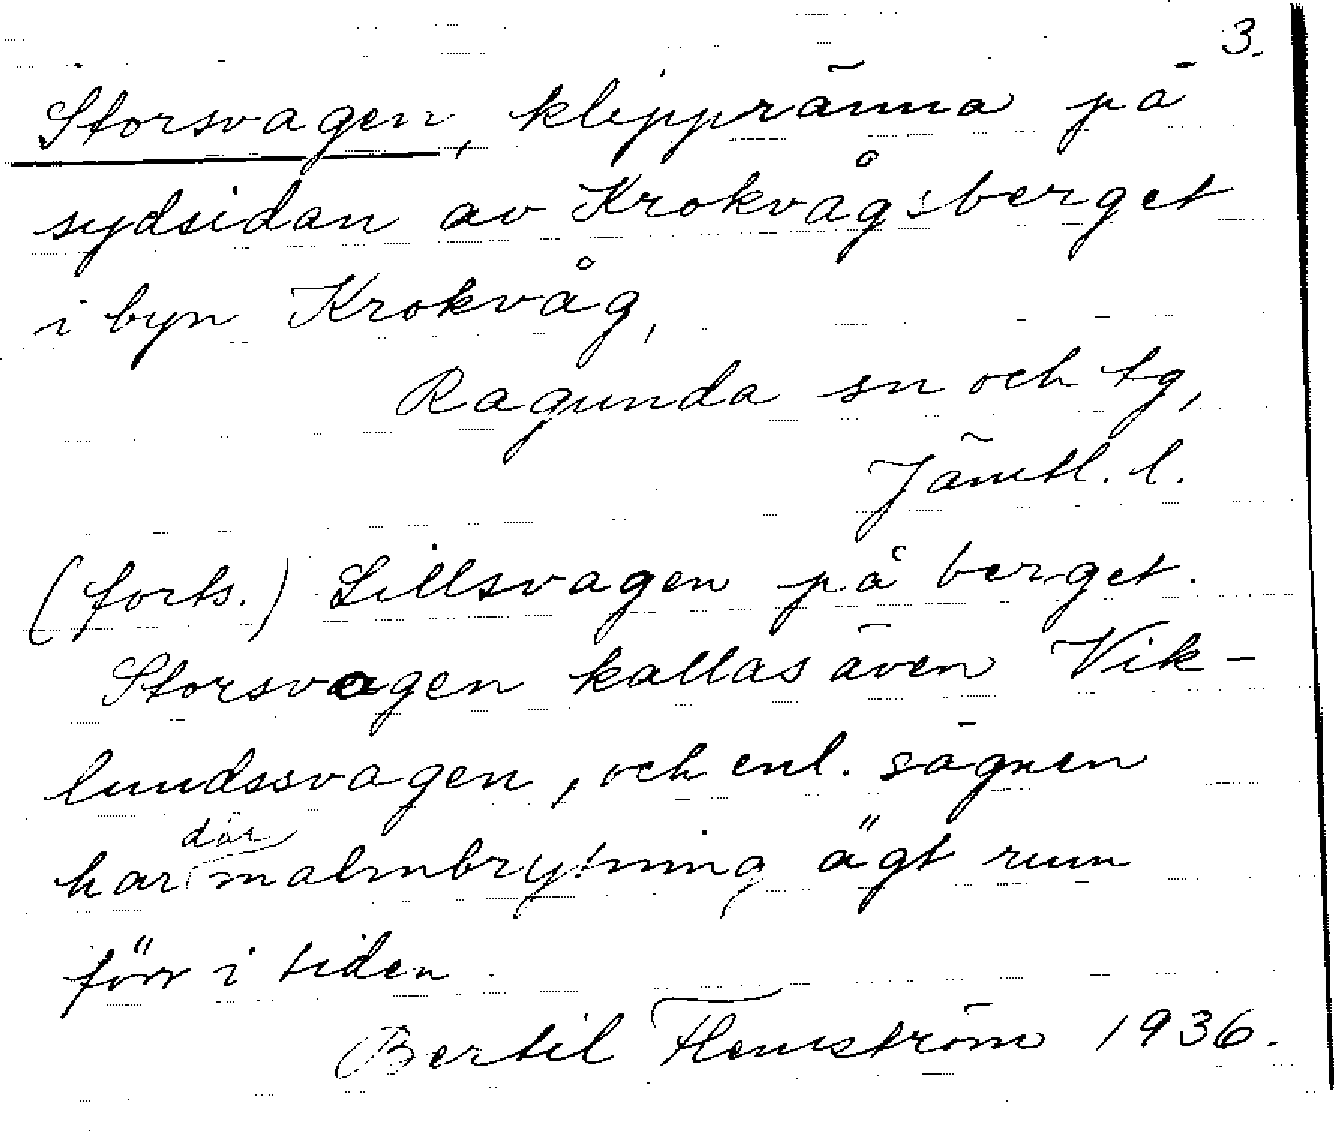 3.
Storsvagen, klippränna på
sydsidan av Krokvågsberget
i byn Krokvåg,
Ragunda sn och tg,
Jämtl. l.
(forts.) Lillsvagen på berget.
Storsvagen kallas även Vik-
lundssvagen, och enl. sägnen
har där malmbrytning ägt rum
förr i tiden.
Bertil Flemström 1936.